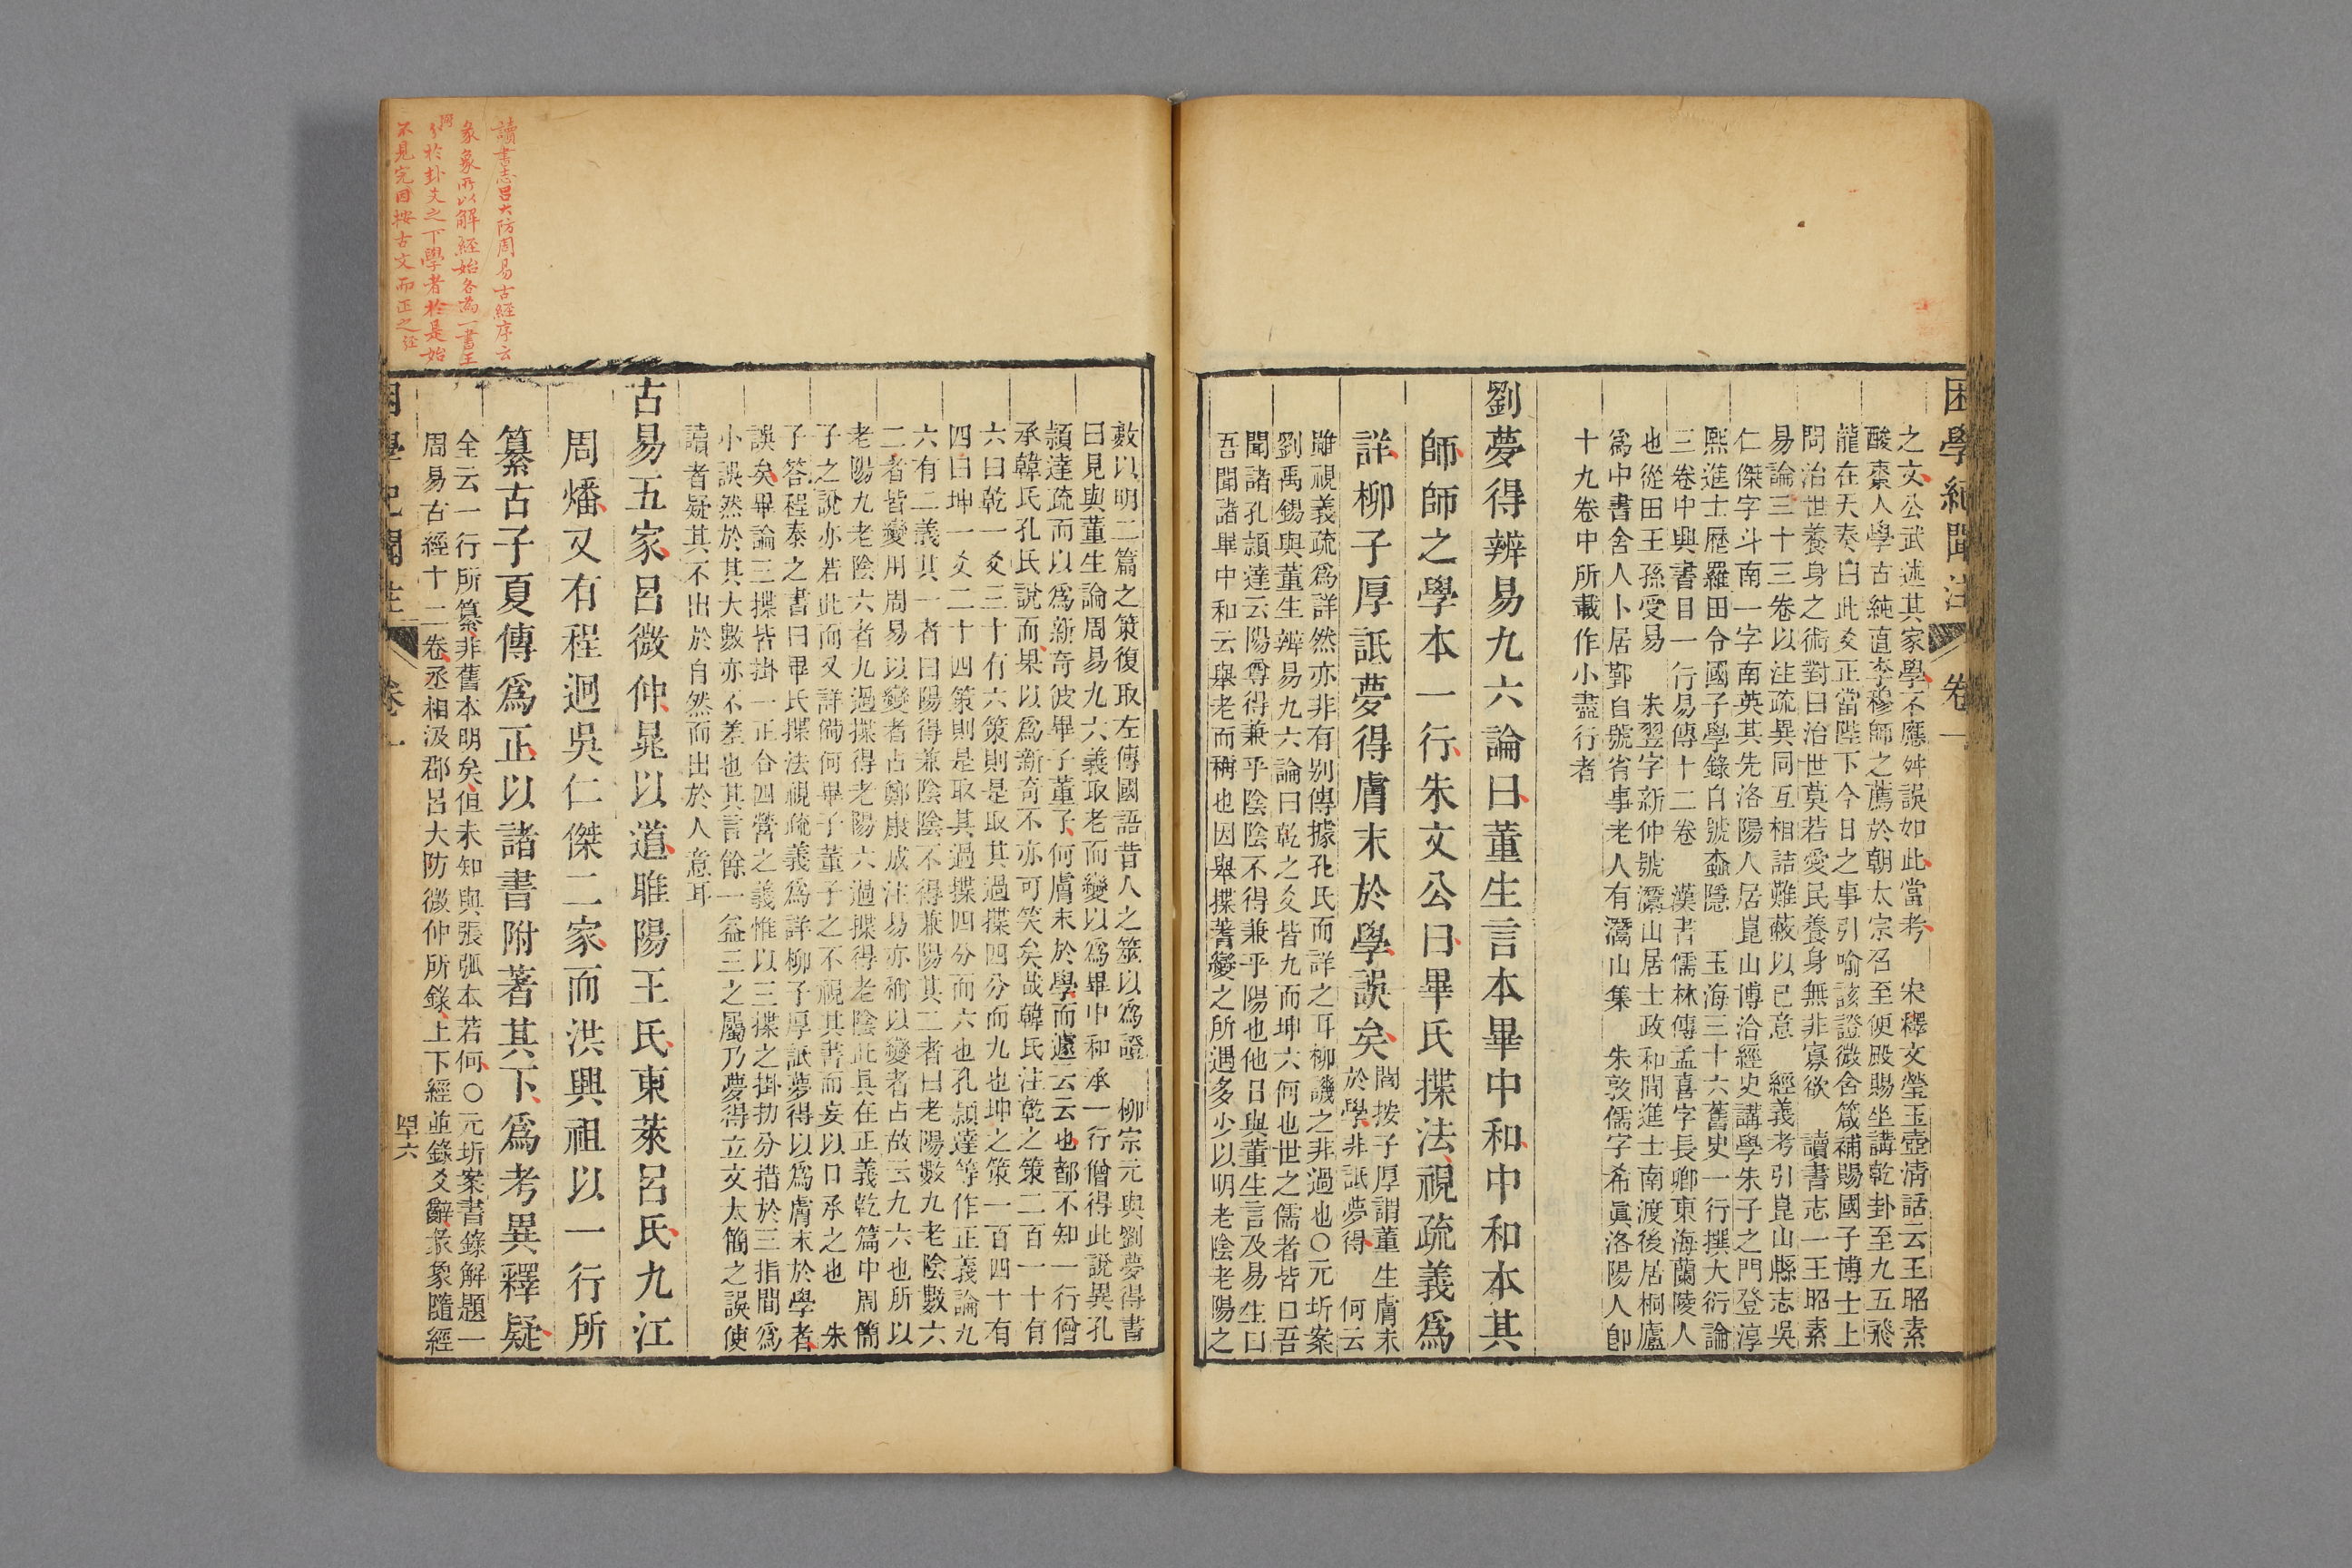 困學紀聞注 卷一
之文公武述其家學不應舛誤如此當考 宋釋文瑩玉壺清話云王昭素
酸棗人學古純直李穆師之薦於朝太宗召至便殿賜坐講乾卦至九五飛
龍在天奏曰此爻正當陛下今日之事引喻該證微含箴補賜國子博士上
問治世養身之術對曰治世莫若愛民養身無非寡欲 讀書志一王昭素
易論三十三卷以注疏異同互相詰難蔽以已意 經義考引崑山縣志吳
仁傑字斗南一字南英其先洛陽人居崑山博洽經史講學朱子之門登淳
熙進士歷羅田令國子學錄自號螙隱 玉海三十六舊史一行撰大衍論
三卷中興書目一行易傳十二卷 漢書儒林傳孟喜字長卿東海蘭陵人
也從田王孫受易 朱翌字新仲號灊山居士政和間進士南渡後居桐廬
爲中書舍人卜居鄞自號省事老人有灊山集 朱敦儒字希眞洛陽人卽
十九卷中所載作小盡行者
劉夢得辨易九六論曰董生言本畢中和中和本其
師師之學本一行朱文公曰畢氏揲法視疏義爲
詳柳子厚詆夢得膚末於學誤矣 閻按子厚謂董生膚末
於學非詆夢得 何云
雖視義疏爲詳然亦非有别傳據孔氏而詳之耳柳譏之非過也○元圻案
劉禹錫與董生辨易九六論曰乾之爻皆九而坤六何也世之儒者皆曰吾
聞諸孔頴達云陽尊得兼乎陰陰不得兼乎陽也他日與董生言及易生曰
吾聞諸畢中和云舉老而稱也因舉揲蓍變之所遇多少以明老陰老陽之
數以明二篇之策復取左傳國語昔人之筮以爲證 柳宗元與劉夢得書
曰見與董生論周易九六義取老而變以爲畢中和承一行僧得此說異孔
頴達疏而以爲新奇彼畢子董子何膚末於學而遽云云也都不知一行僧
承韓氏孔氏說而果以爲新奇不亦可笑矣哉韓氏注乾之策二百一十有
六曰乾一爻三十有六策則是取其過揲四分而九也坤之策一百四十有
四曰坤一爻二十四策則是取其過揲四分而六也孔頴達等作正義論九
六有二義其一者曰陽得兼陰陰不得兼陽其二者曰老陽數九老陰數六
二者皆變用周易以變者占鄭康成注易亦稱以變者占故云九六也所以
老陽九老陰六者九過揲得老陽六過揲得老陰此具在正義乾篇中周簡
子之說亦若此而又詳備何畢子董子之不視其書而妄以口承之也 朱
子答程泰之書曰畢氏揲法視疏義爲詳柳子厚詆夢得以爲膚末於學者
誤矣畢論三揲皆掛一正合四營之義惟以三揲之掛扐分措於三指間爲
小誤然於其大數亦不差也其言餘一益三之屬乃夢得立文太簡之誤使
讀者疑其不出於自然而出於人意耳
古易五家呂微仲晁以道睢陽王氏東萊呂氏九江
周燔又有程迥吳仁傑二家而洪興祖以一行所
纂古子夏傳爲正以諸書附著其下爲考異釋疑
全云一行所纂非舊本明矣但未知與張弧本若何○元圻案書錄解題一
周易古經十二卷丞相汲郡呂大防微仲所錄上下經並錄爻辭彖象隨經
困學紀聞注 卷一 四十六
讀書志呂大防周易古經序云
彖象所以解經始各為一書王
弼於卦爻之下學者於是始
不見完因按古文而正之